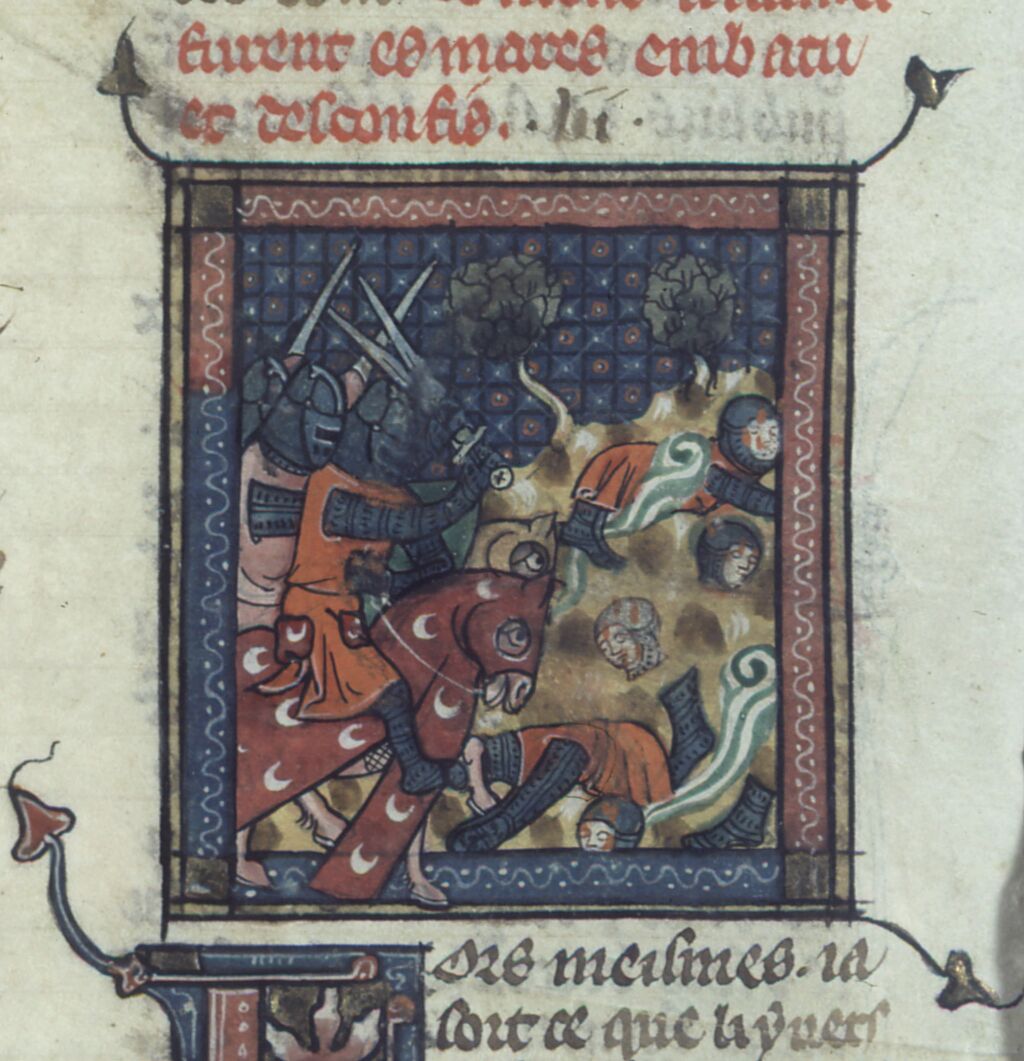 furent es mares embatu
et desconfis. .lii.
ors meismes. ia
soit ce que li yuers